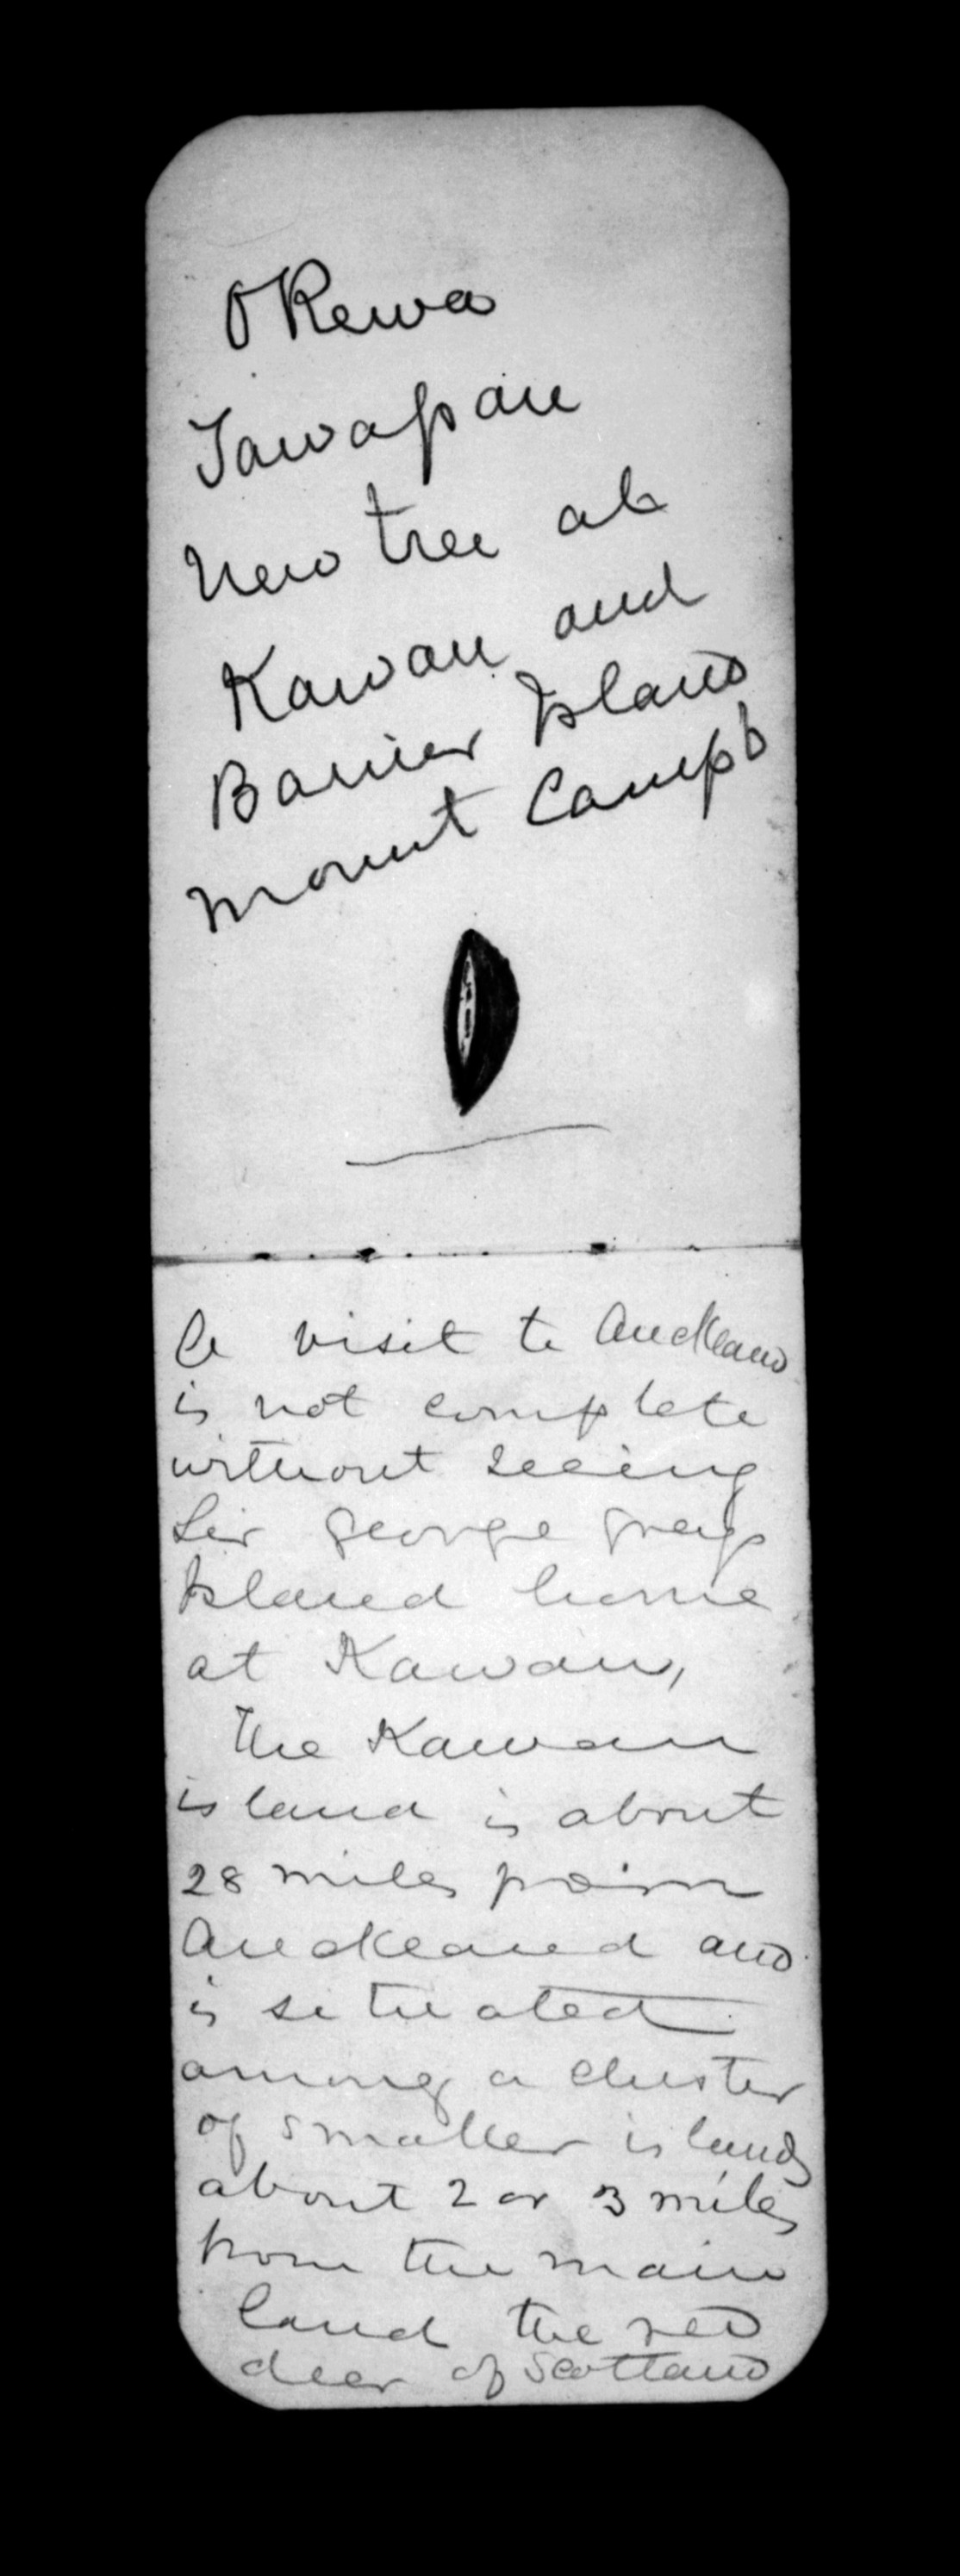 O Rewa
Tawapau
New tree at
Kawau and
Barrier Island
Mount Camp'b
A visit to Auckland
is not complete
without seeing
Sir George Greys
Island home
at Kawau,
The Kawau
island is about
28 miles from
Auckland and
is situated
among a cluster
of smaller islands
about 2 or 3 miles
from the main
land the red
deer of Scotland